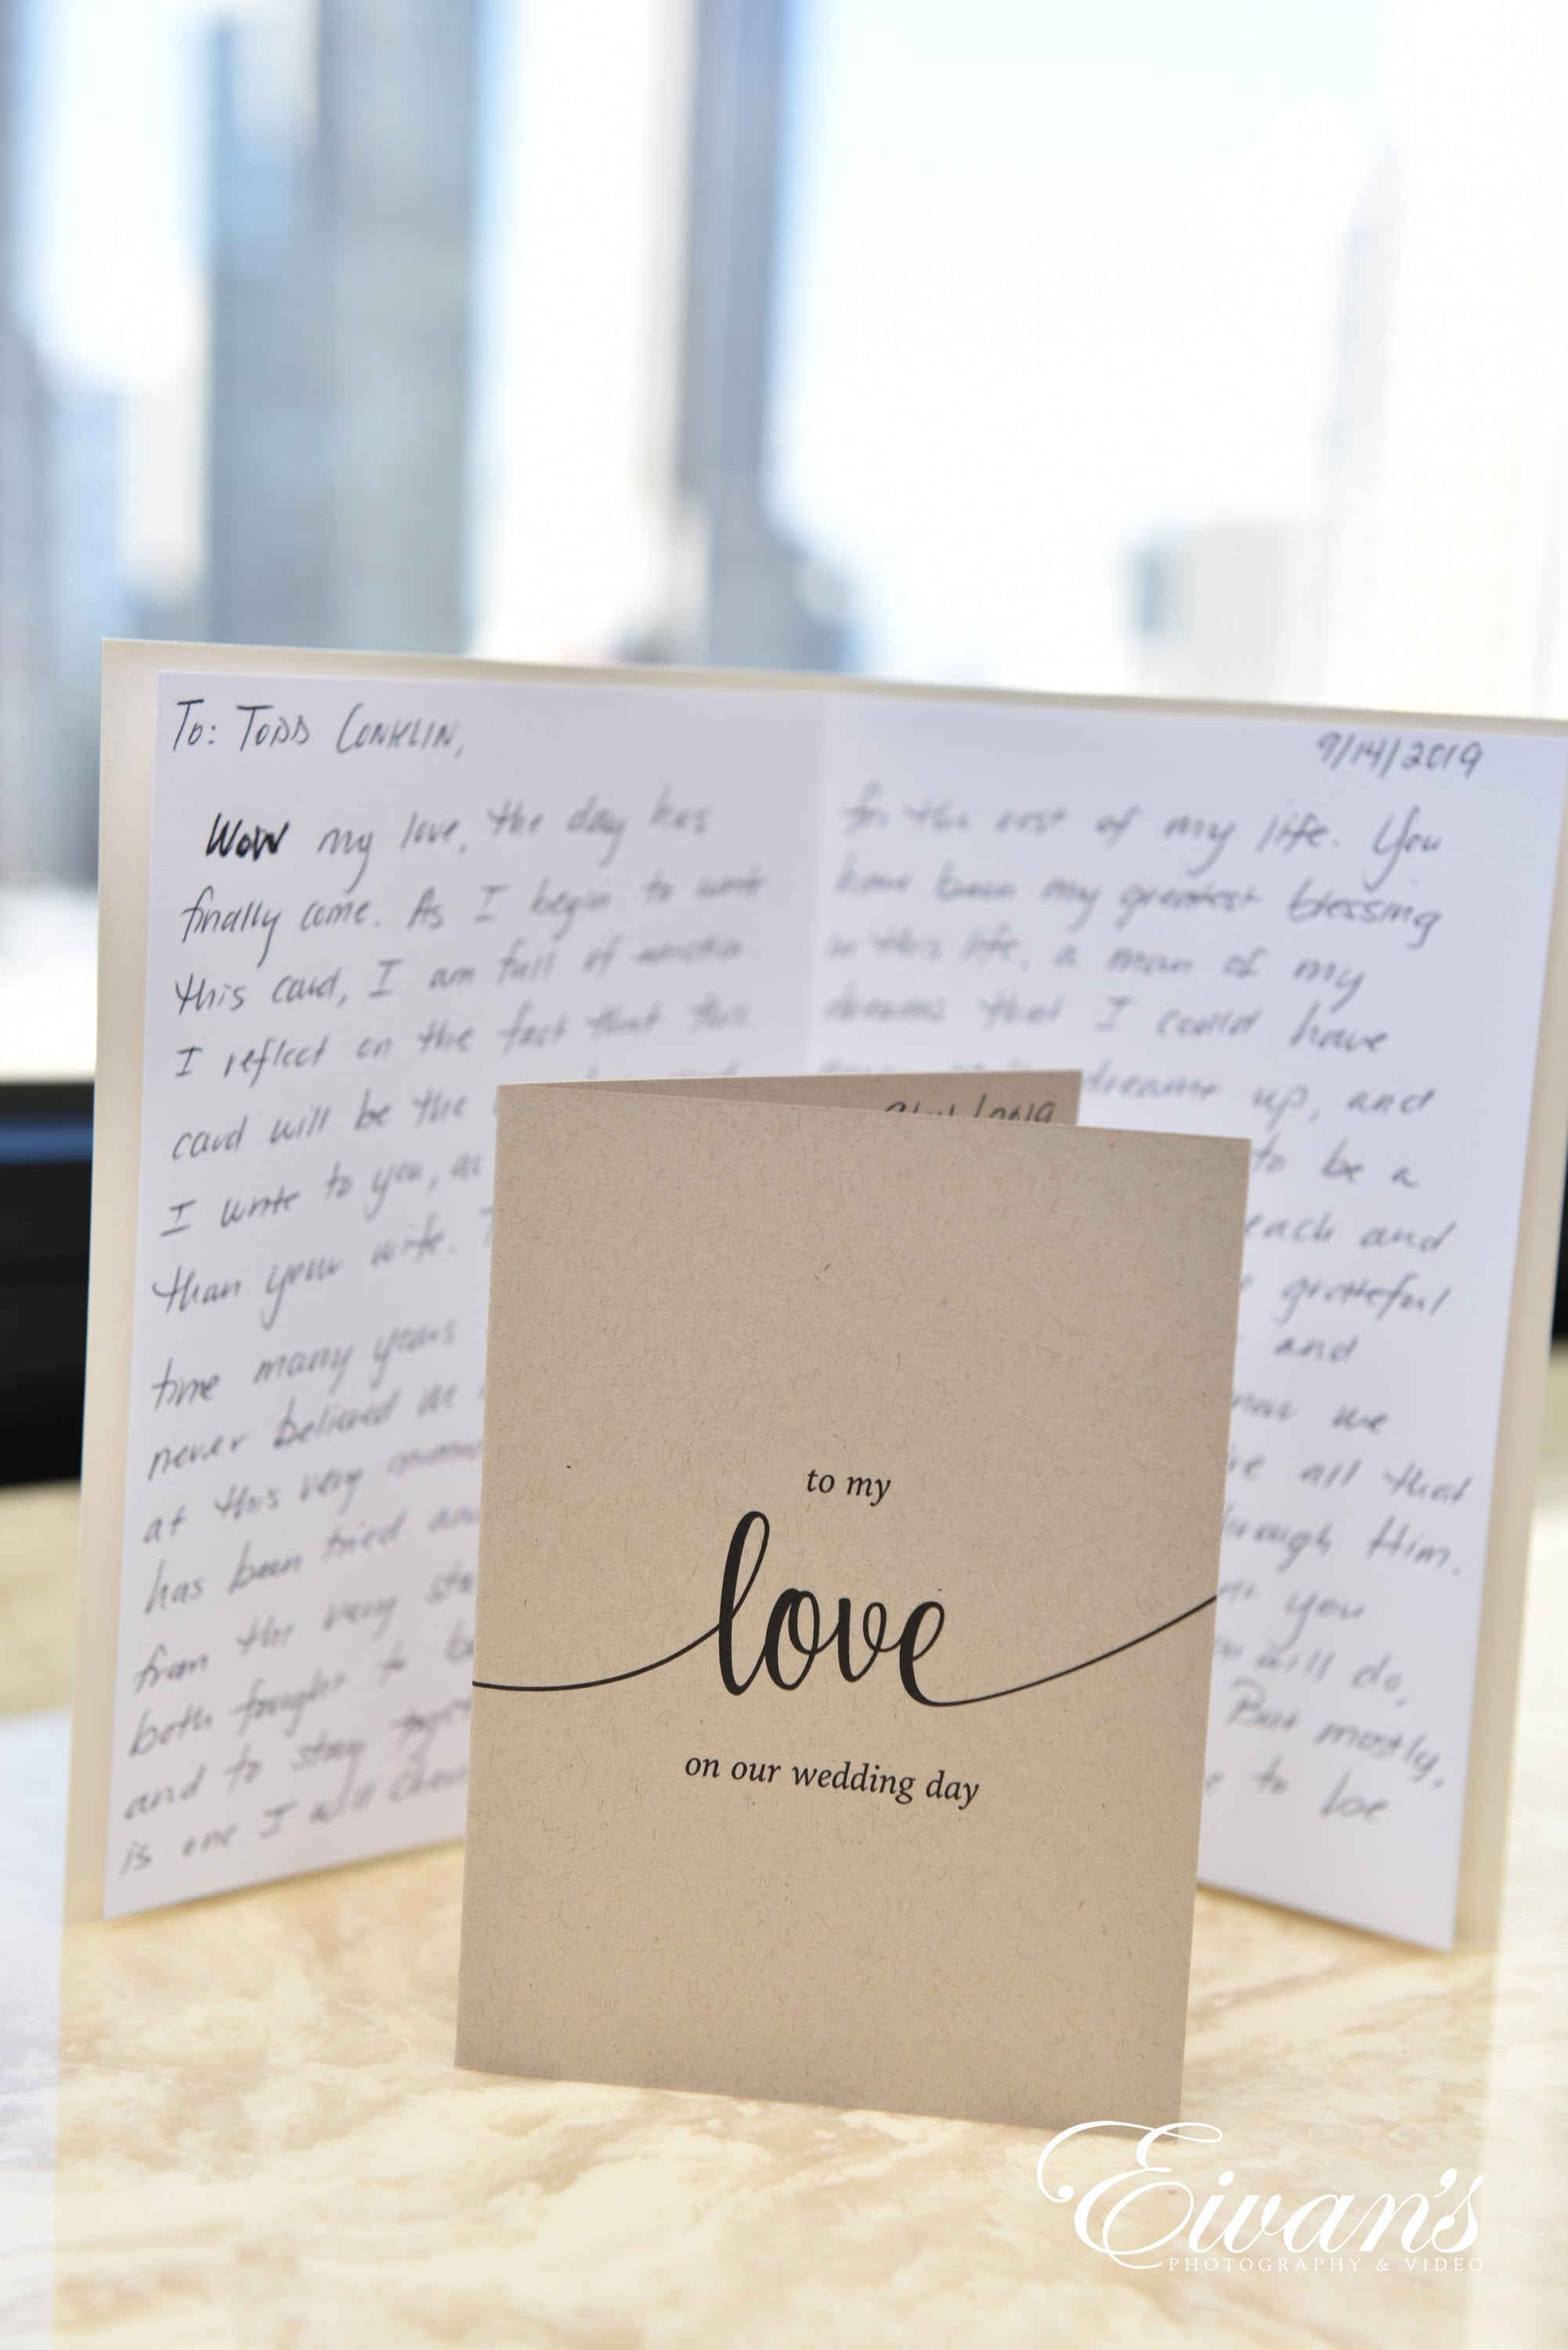 To: TODD CONKLIN,
9/14/2019
WOW my love, the day has
finally come. As I begin to write
this card, I am full of emotion.
I reflect on the fact that this
card will be the
I write to you, as
than your wife.
time many years
never believed we
at this very moment
has been tried and
from the very sta
both fought to be
and to stay toget
is one I will
for the rest of my life. You
have been my greatest blessing
in this life, a man of my
dreams that I could have
dreamt up, and
to be a
each and
grateful
and
me
all that
through Him.
you
will do,
But mostly,
to be
to my
love
on our wedding day
Eivan's
PHOTOGRAPHY & VIDEO